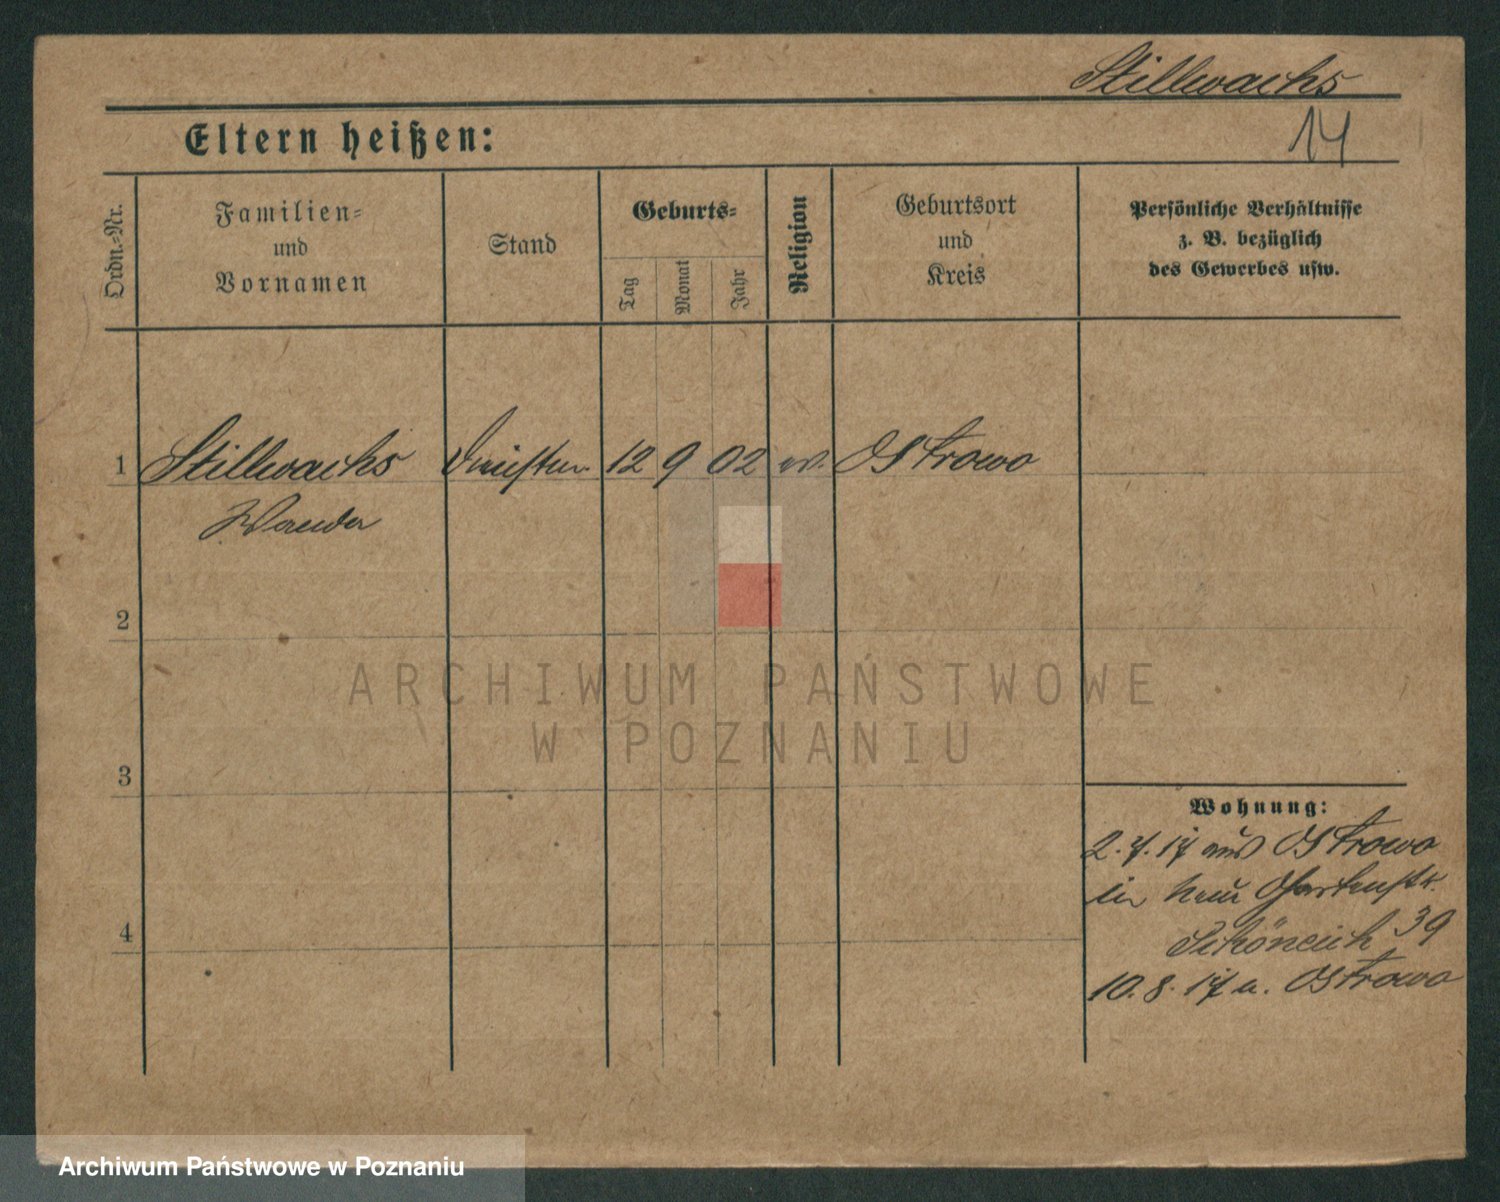 Stillwachs
Eltern heißen:
14
Ordn.-Nr.
Familien-
und
Vornamen
Stand
Geburts-
Tag
Monat
Jahr
Religion
Geburtsort
und
Kreis
Persönliche Verhältnisse
z. B. bezüglich
des Gewerbes usw.
1 Stillwachs 12 9 02 Ostrowo
Wanda
2
ARCHIWUM PAŃSTWOWE
W POZNANIU
3
Wohnung:
2. 7. 17 aus Ostrowo
Gartenstr.
39
4
10. 8. 17 n. Ostrowo
Archiwum Państwowe w Poznaniu